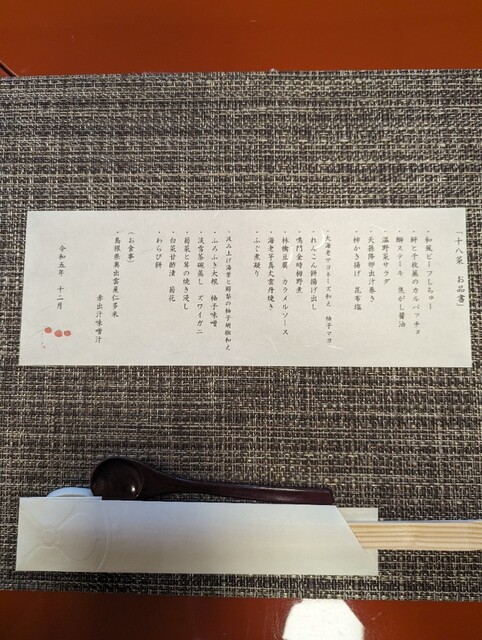 「十八菜　お品書」
和風ビーフしちゅー
・鮃と千枚蕪のカルパッチョ
鰤ステーキ　焦がし醤油
温野菜サラダ
・天孫降卵出汁巻き
・柿かき揚げ　昆布塩
大海老マヨネーズ和え　柚子マヨ
れんこん餅揚げ出し
・鳴門金時栂野煮
林檎豆腐　カラメルソース
・海老芋真丈雲丹焼き
・ふぐ煮凝り
・汲み上げ湯葉と鄙勢の柚子胡椒和え
・ふろふき大根　柚子味噌
・淡雪茶碗蒸し　ズワイガニ
・菊菜と茸の焼き浸し
・白菜甘酢漬　菊花
・わらび餅
（お食事）
・島根県奥出雲産仁多米
赤出汁味噌汁
令和五年　十二月